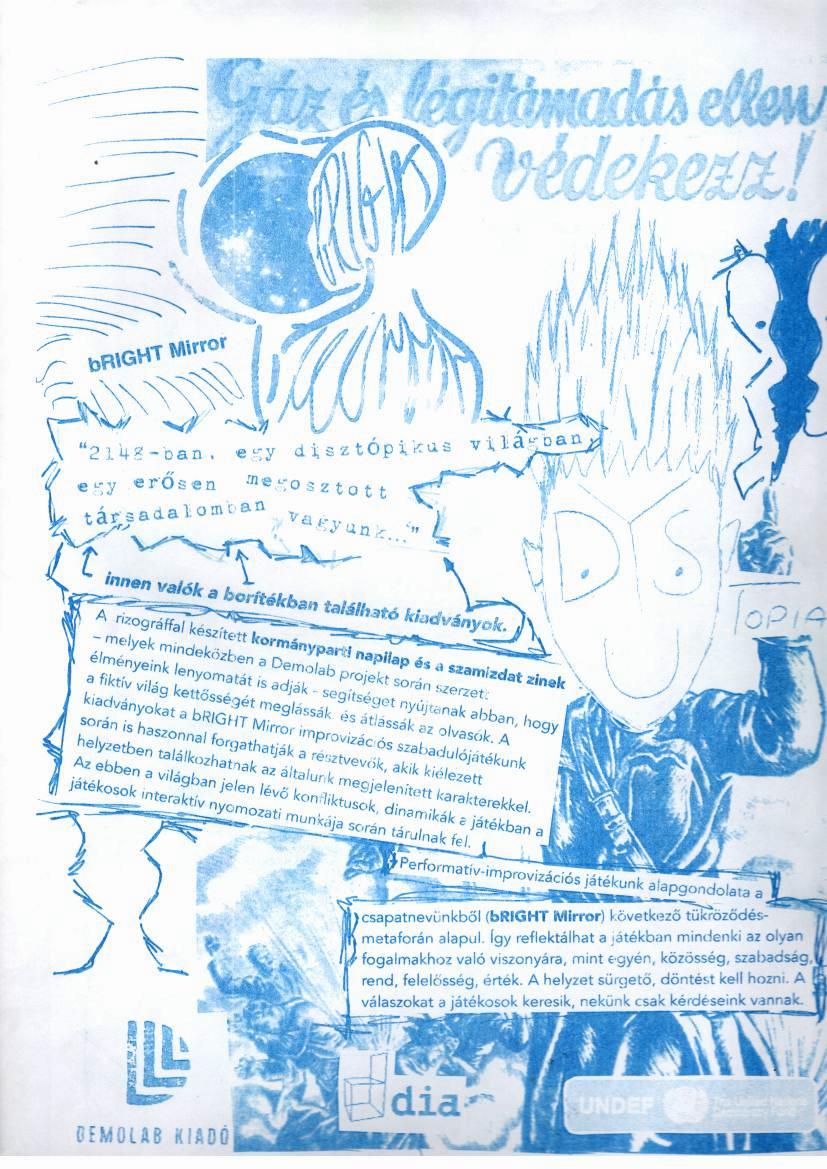 Gáz és légitámadás ellen
védekezz!
bRIGHT Mirror
“2148-ban, egy disztópikus világban,
egy erősen megosztott
társadalomban vagyunk...”
innen valók a borítékban található kiadványok.
DYS
TOPIA
A rizográffal készített kormányparti napilap és a szamizdat zinek
– melyek mindeközben a Demolab projekt során szerzett
élményeink lenyomatát is adják - segítséget nyújtanak abban, hogy
a fiktív világ kettősségét meglássák és átlássák az olvasók. A
kiadványokat a bRIGHT Mirror improvizációs szabadulójátékunk
során is haszonnal forgathatják a résztvevők, akik kiélezett
helyzetben találkozhatnak az általunk megjelenített karakterekkel.
Az ebben a világban jelen lévő konfliktusok, dinamikák a játékban a
játékosok interaktív nyomozati munkája során tárulnak fel.
Performatív-improvizációs játékunk alapgondolata a
csapatnevünkből (bRIGHT Mirror) következő tükröződés-
metaforán alapul. Így reflektálhat a játékban mindenki az olyan
fogalmakhoz való viszonyára, mint egyén, közösség, szabadság,
rend, felelősség, érték. A helyzet sürgető, döntést kell hozni. A
válaszokat a játékosok keresik, nekünk csak kérdéseink vannak.
DEMOLAB KIADÓ
dia
UNDEF
The United Nations
Democracy Fund